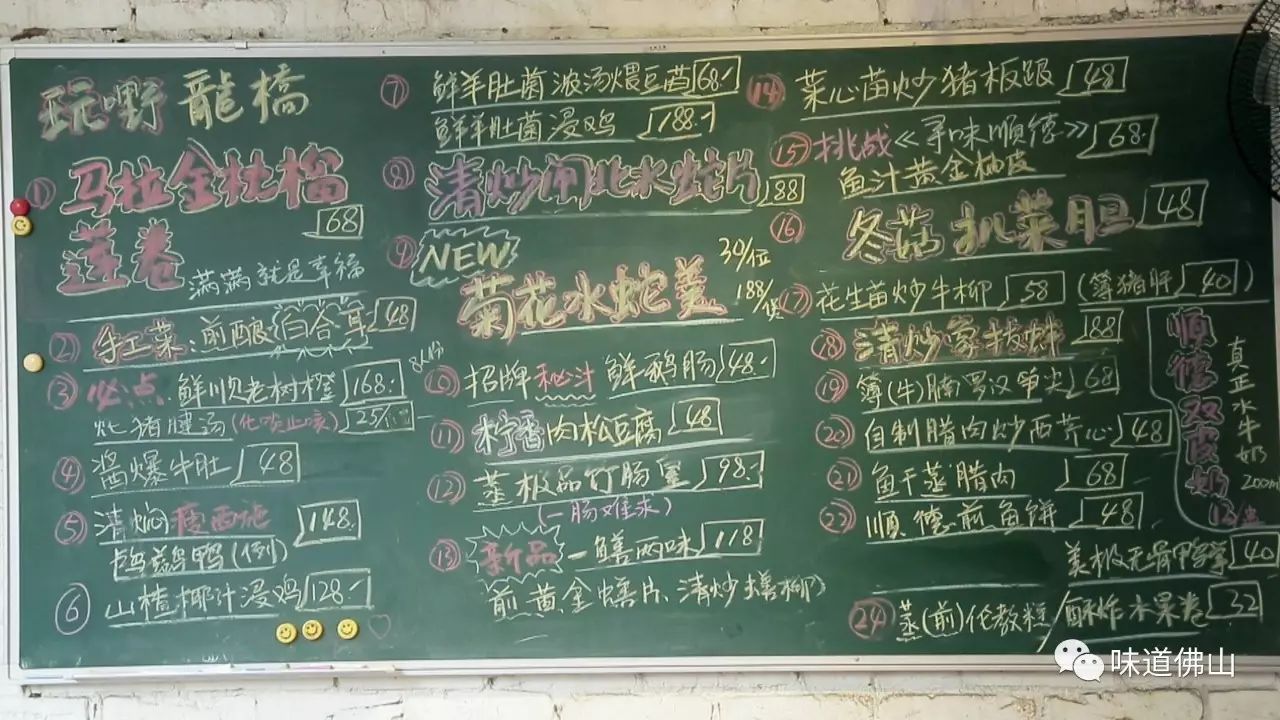 玩嘢龍橋
① 马拉金杜榴 68
莲卷 满满就是幸福
② 手工菜:煎酿白合耳 48
③ 必点 鲜顺老树橙 168.
炖猪腱汤(化啖止咳) 25/位
④ 酱爆牛肚 48
⑤ 清焖 西施 148
鸬鹚鸭(例)
⑥ 山楂椰汁浸鸡 128.
⑦ 鲜羊肚菌浓汤煨豆苗 68.
鲜羊肚菌浸鸡 188.
⑧ 清炒闸北水蛇片 88
⑨ NEW 30/位
菊花水蛇羹 188/煲
⑩ 招牌秘汁鲜鹅肠 48.
⑪ 柠香肉松豆腐 48
⑫ 蒸极品竹肠 98.
(一肠难求)
⑬ 新品 一鳝两味 118
煎黄金鳝片、清炒鳝柳)
⑭ 菜心苗炒猪板 48
⑮ 挑战《寻味顺德》 68
鱼汁黄金柚皮
⑯ 冬菇扒菜胆 48
⑰ 花生苗炒牛柳 58 (簿猪肝 40)
⑱ 清炒 88
⑲ 簿(牛)腩罗汉笋尖 68
⑳ 自制腊肉炒西芹心 48
㉑ 鱼干蒸腊肉 68
㉒ 順德煎鱼饼 48
美极无骨甲 40
㉔ 蒸(煎)伦教糕/酥炸水果卷 32
順德双皮奶
真正水牛奶
200m
味道佛山